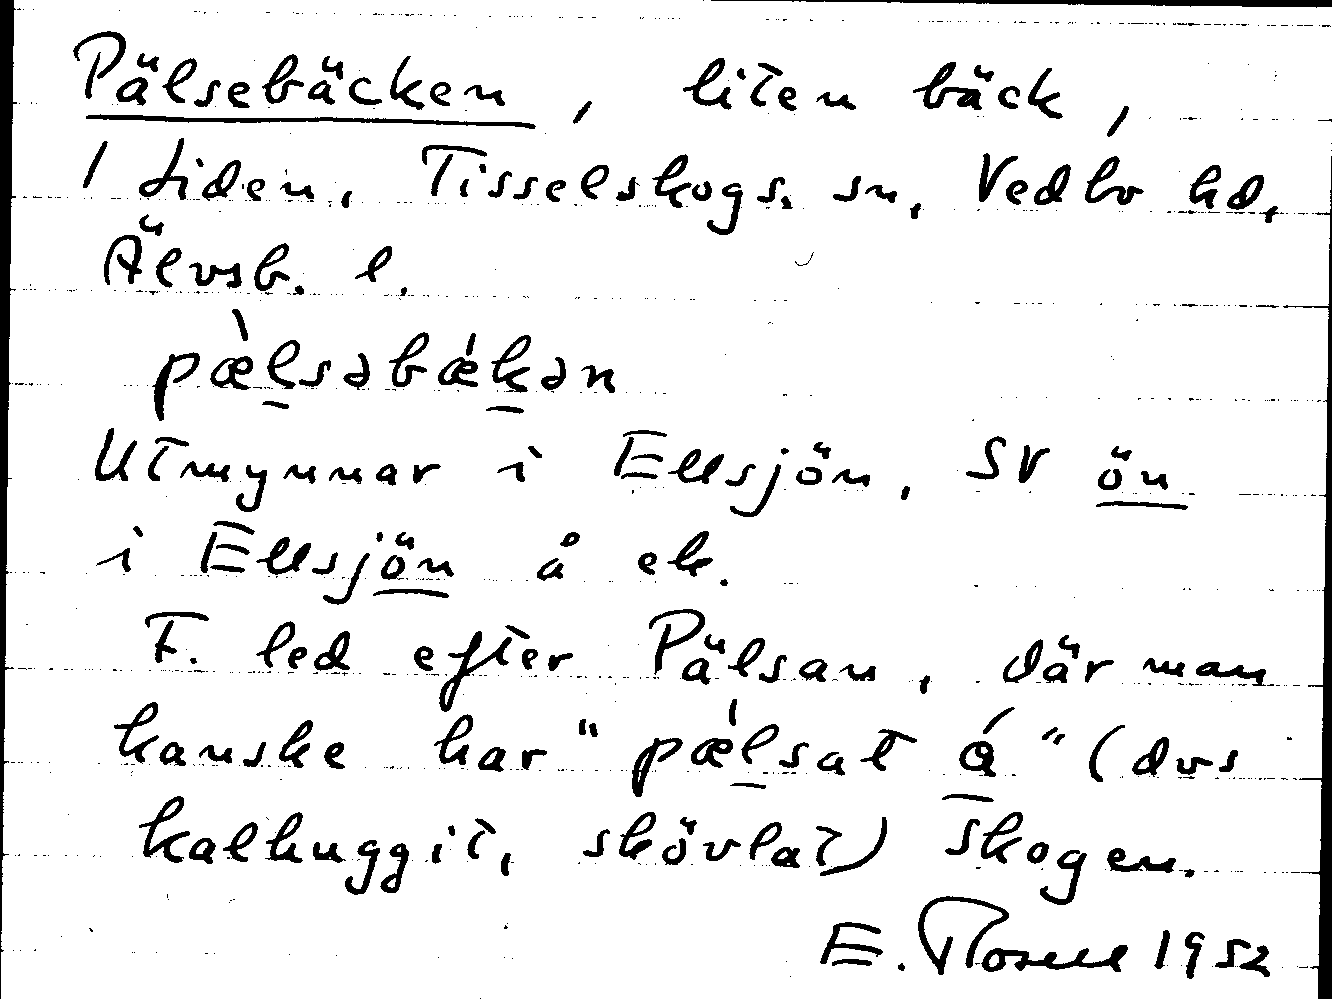 Pälsebäcken, liten bäck,
1 Liden, Tisselskogs. sn, Vedbo hd,
Älvsb. l.
pæ̀l̠səbǽk̠ən
Utmynnar i Ellsjön, SV ön
i Ellsjön å ek.
F. led efter Pälsan, där man
kanske har "pæ̀l̠sat á̠" (dvs
kalhuggit, skövlat) skogen.
E. Rosell 1952